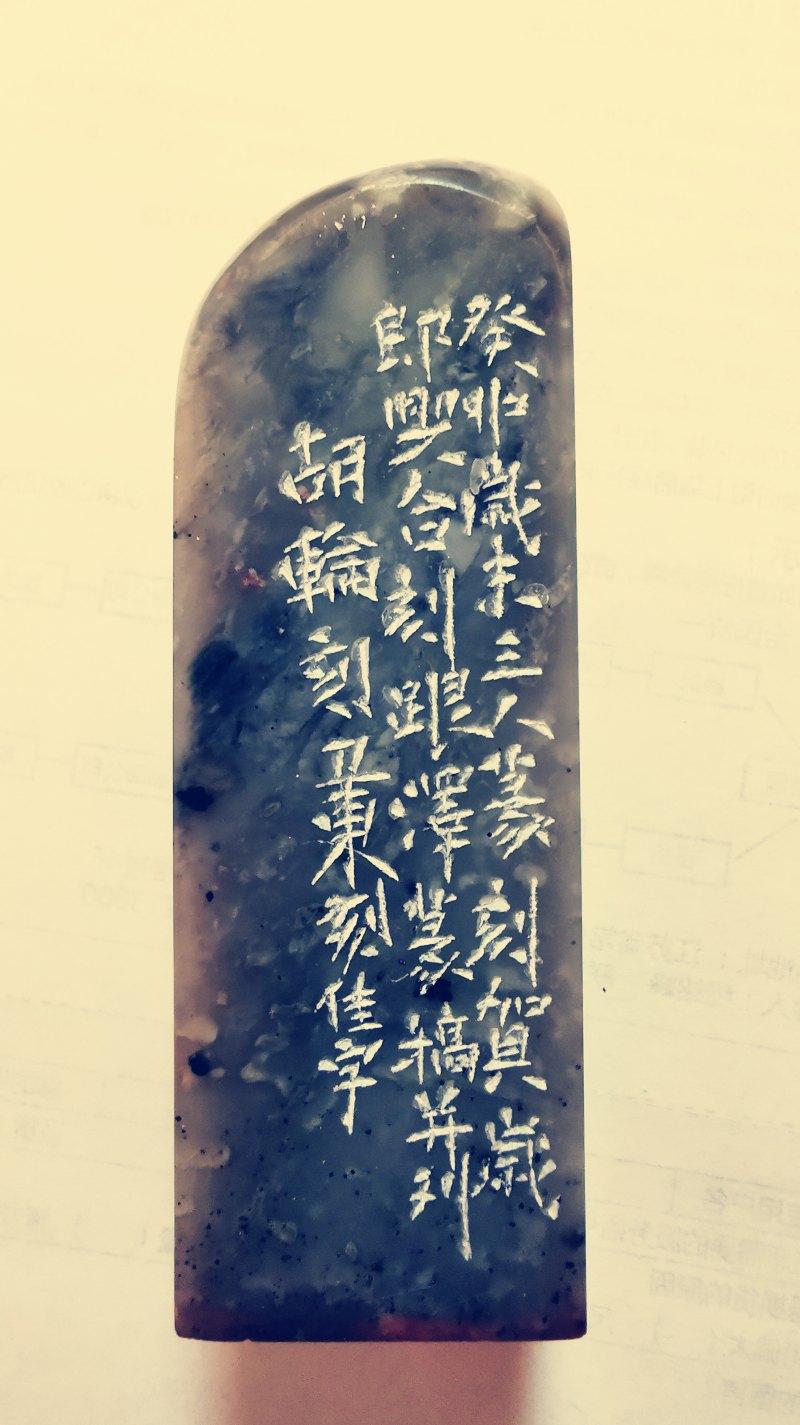 癸卯歲末三人篆刻賀歲
即興合刻跟澤篆稿并列
胡輪刻東刻佳字